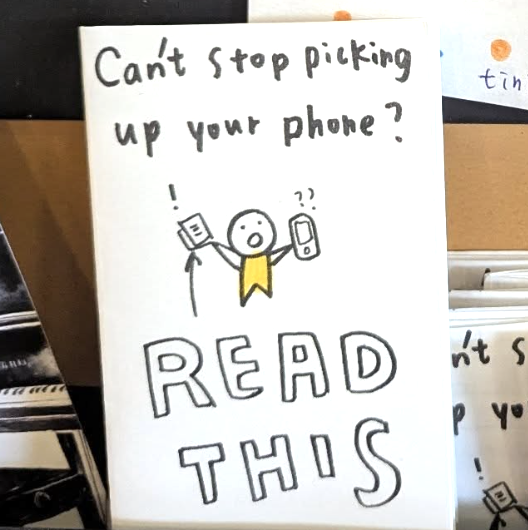 Can't stop picking
up your phone?
! ??
READ
THIS
tin
n't s
p yo
!